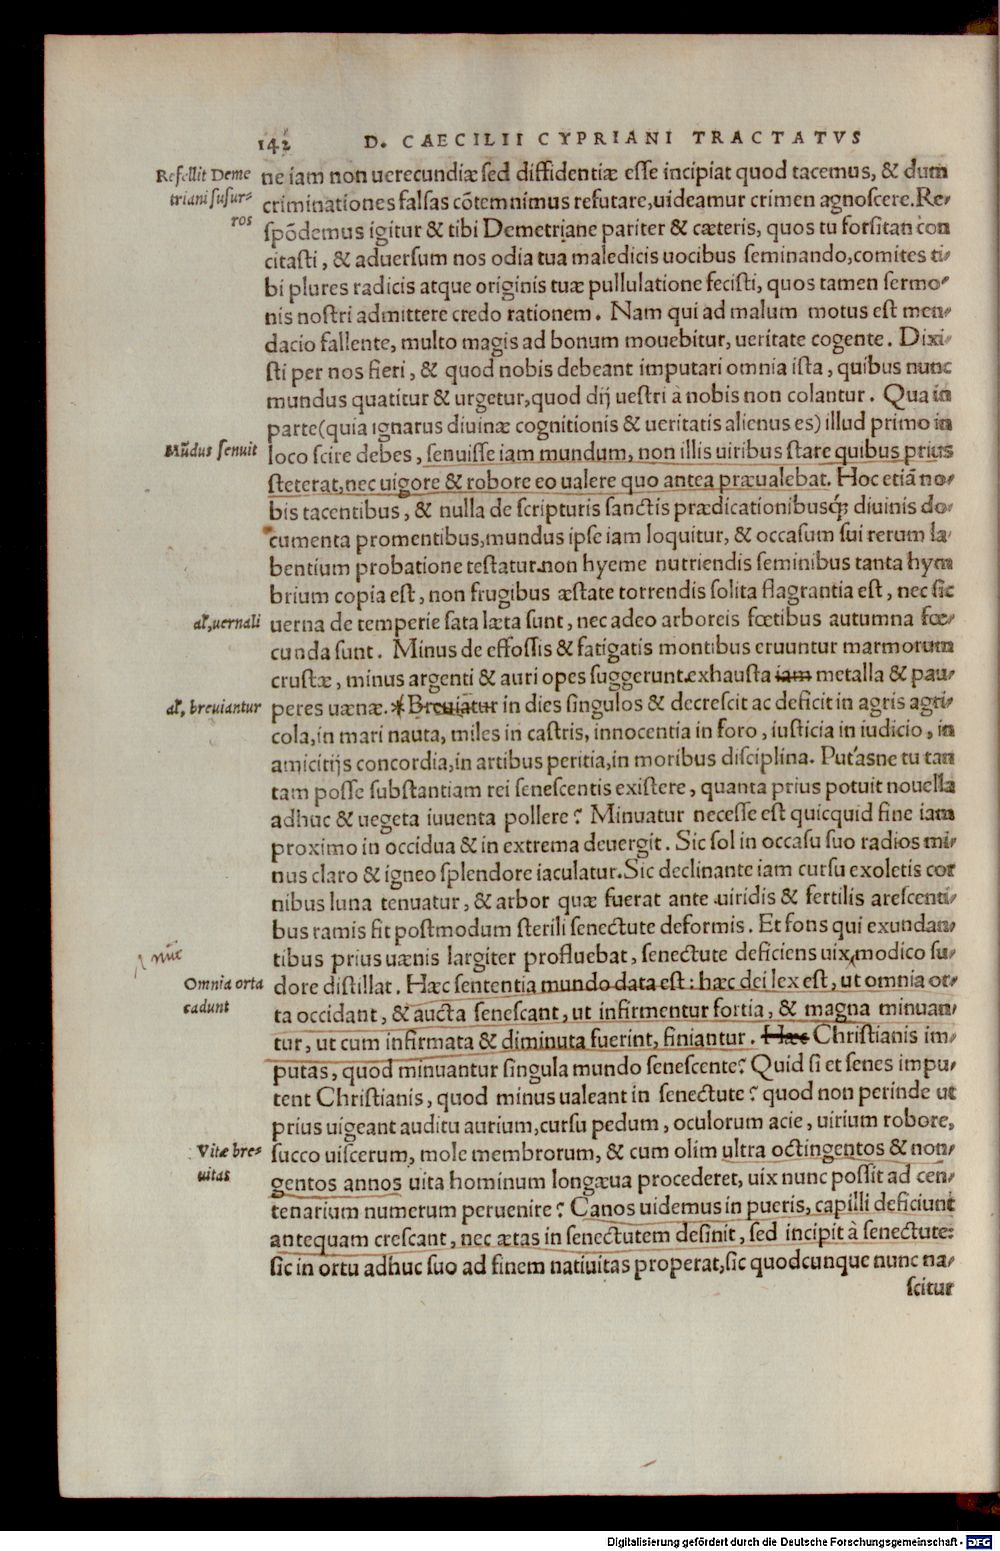 142 D. CAECILII CYPRIANI TRACTATVS
Refellit Deme
triani susur-
ros
ne iam non uerecundiæ sed diffidentiæ esse incipiat quod tacemus, & dum
criminationes falsas cōtemnimus refutare, uideamur crimen agnoscere. Re-
spōdemus igitur & tibi Demetriane pariter & cæteris, quos tu forsitan con
citasti, & aduersum nos odia tua maledicis uocibus seminando, comites ti-
bi plures radicis atque originis tuæ pullulatione fecisti, quos tamen sermo-
nis nostri admittere credo rationem. Nam qui ad malum motus est men-
dacio fallente, multo magis ad bonum mouebitur, ueritate cogente. Dixi-
sti per nos fieri, & quod nobis debeant imputari omnia ista, quibus nunc
mundus quatitur & urgetur, quod dij uestri à nobis non colantur. Qua in
parte (quia ignarus diuinæ cognitionis & ueritatis alienus es) illud primo in
Mūdus senuit
loco scire debes, senuisse iam mundum, non illis uiribus stare quibus prius
steterat, nec uigore & robore eo ualere quo antea præualebat. Hoc etiā no-
bis tacentibus, & nulla de scripturis sanctis prædicationibusq; diuinis do-
cumenta promentibus, mundus ipse iam loquitur, & occasum sui rerum la-
bentium probatione testatur. non hyeme nutriendis seminibus tanta hym
brium copia est, non frugibus æstate torrendis solita flagrantia est, nec sic
al', uernali
uerna de temperie sata læta sunt, nec adeo arboreis fœtibus autumna fœ-
cunda sunt. Minus de effossis & fatigatis montibus eruuntur marmorum
crustæ, minus argenti & auri opes suggerunt exhausta iam metalla & pau-
al', breuiantur
peres uænæ. * Breuiatur in dies singulos & decrescit ac deficit in agris agri-
cola, in mari nauta, miles in castris, innocentia in foro, iusticia in iudicio, in
amicitijs concordia, in artibus peritia, in moribus disciplina. Put'asne tu tan
tam posse substantiam rei senescentis existere, quanta prius potuit nouella
adhuc & uegeta iuuenta pollere? Minuatur necesse est quicquid fine iam
proximo in occidua & in extrema deuergit. Sic sol in occasu suo radios mi-
nus claro & igneo splendore iaculatur. Sic declinante iam cursu exoletis cor
nibus luna tenuatur, & arbor quæ fuerat ante uiridis & fertilis arescenti-
bus ramis fit postmodum sterili senectute deformis. Et fons qui exundan-
nūc
tibus prius uænis largiter profluebat, senectute deficiens uix modico su-
Omnia orta
cadunt
dore distillat. Hæc sententia mundo data est: hæc dei lex est, ut omnia or-
ta occidant, & aucta senescant, ut infirmentur fortia, & magna minuan-
tur, ut cum infirmata & diminuta fuerint, finiantur. Hæc Christianis im-
putas, quod minuantur singula mundo senescente? Quid si et senes impu-
tent Christianis, quod minus ualeant in senectute? quod non perinde ut
prius uigeant auditu aurium, cursu pedum, oculorum acie, uirium robore,
Vitæ bre-
uitas
succo uiscerum, mole membrorum, & cum olim ultra octingentos & non-
gentos annos uita hominum longæua procederet, uix nunc possit ad cen-
tenarium numerum peruenire? Canos uidemus in pueris, capilli deficiunt
antequam crescant, nec ætas in senectutem desinit, sed incipit à senectute:
sic in ortu adhuc suo ad finem natiuitas properat, sic quodcunque nunc na-
scitur
Digitalisierung gefördert durch die Deutsche Forschungsgemeinschaft - DFG